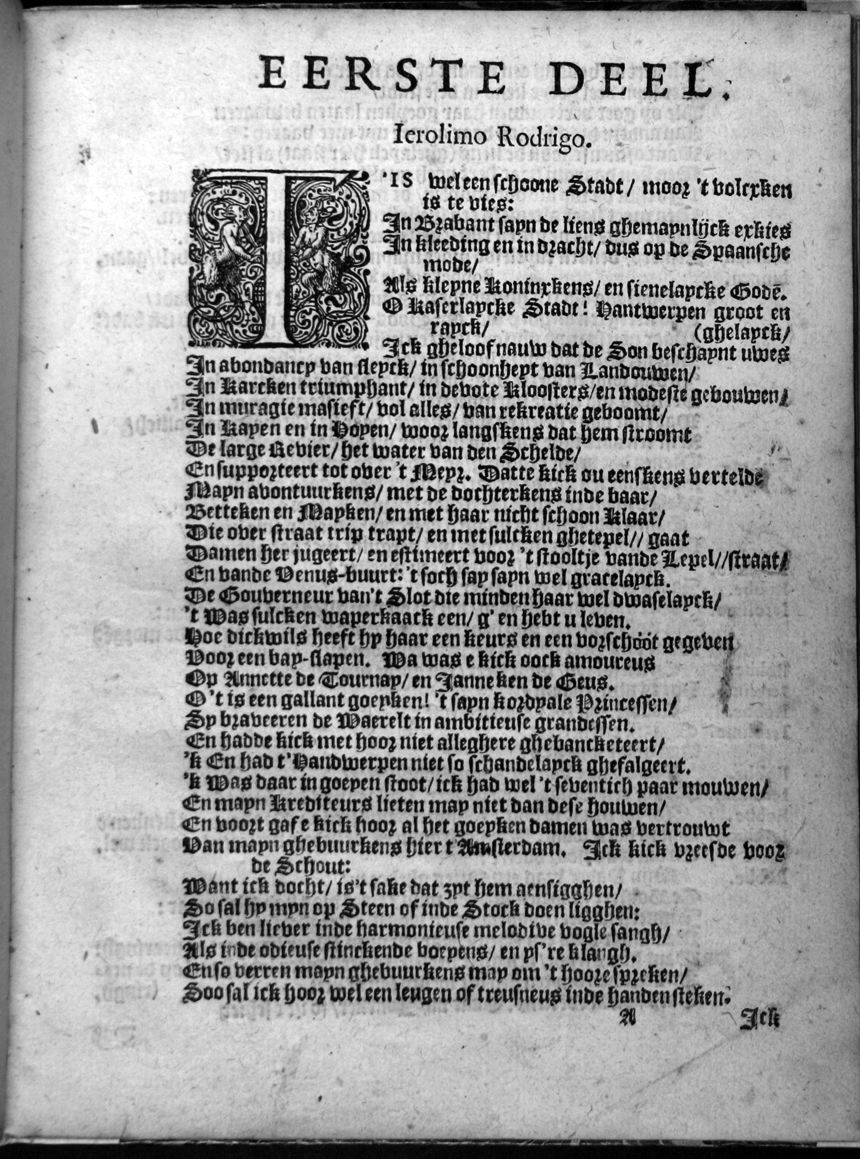 EERSTE DEEL.
Ierolimo Rodrigo.
T'IS wel een schoone Stadt/ moor 't volcxken
is te vies:
In Brabant sayn de liens ghemaynlijck exkies
In kleeding en in dracht/ dus op de Spaansche
mode/
Als kleyne Koninxkens/ en sienelaycke Godē.
O Kaserlaycke Stadt! Hantwerpen groot en
rayck/ (ghelayck/
Ick gheloof nauw dat de Son beschaynt uwes
In abondancy van sleyck/ in schoonheyt van Landouwen/
In Karcken triumphant/ in devote Kloosters/en modeste gebouwen/
In muragie masieft/ vol alles/ van rekreatie geboomt/
In Kayen en in Hoyen/ woor langskens dat hem stroomt
De large Revier/ het water van den Schelde/
En supporteert tot over 't Meyr. Datte kick ou eenskens vertelde
Mayn avontuurkens/ met de dochterkens inde baar/
Betteken en Mayken/ en met haar nicht schoon Klaar/
Die over straat trip trapt/ en met sulcken ghetepel// gaat
Damen her jugeert/ en estimeert voor 't stooltje vande Lepel//straat/
En vande Venus-buurt: 't soch say sayn wel gracelayck.
De Gouverneur van't Slot die minden haar wel dwaselayck/
't Was sulcken waperkaack een/ g' en hebt u leven.
Hoe dickwils heeft hy haar een keurs en een vorschoöt gegeven
Voor een bay-slapen. Wa was e kick oock amoureus
Op Annette de Tournay/ en Janneken de Geus.
O 't is een gallant goeyken! 't sayn kordyale Princessen/
Sy braveeren de Waerelt in ambitieuse grandessen.
En hadde kick met hoor niet alleghere ghebancketeert/
'k En had t'Handwerpen niet so schandelayck ghefalgeert.
'k Was daar in goeyen stoot/ ick had wel 't seventich paar mouwen/
En mayn Krediteurs lieten may niet dan dese houwen/
En voort gaf e kick hoor al het goeyken damen was vertrouwt
Van mayn ghebuurkens hier t'Amsterdam. Ick kick vreesde voor
de Schout:
Want ick docht/ is't sake dat zyt hem aensigghen/
So sal hy myn op Steen of inde Stock doen ligghen:
Ick ben liever inde harmonieuse melodive vogle sangh/
Als inde odieuse stinckende boeyens/ en ys're klangh.
En so verren mayn ghebuurkens may om 't hoore spreken/
Soo sal ick hoor wel een leugen of treusneus inde handen steken.
A Ick